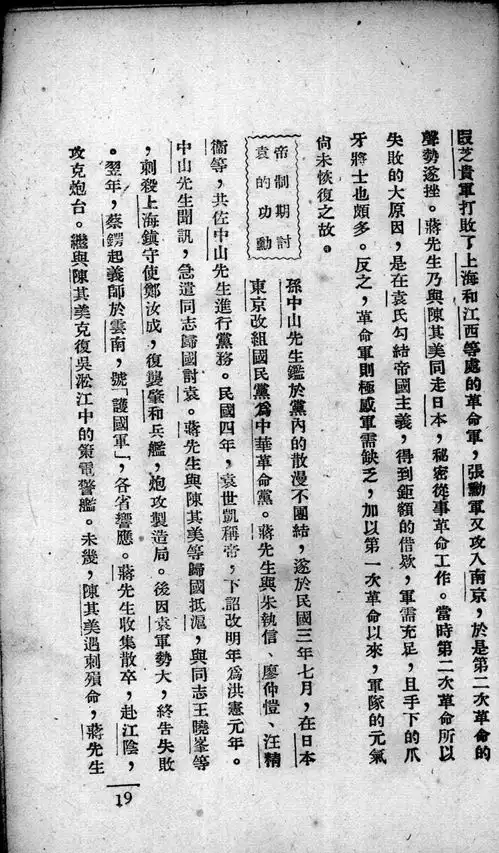 段芝貴軍打敗了上海和江西等處的革命軍,張勳軍又攻入南京,於是第二次革命的
聲勢遂挫。蔣先生乃與陳其美同走日本,秘密從事革命工作。當時第二次革命所以
失敗的大原因,是在袁氏勾結帝國主義,得到鉅額的借欵,軍需充足,且手下的爪
牙將士也頗多。反之,革命軍則極感軍需缺乏,加以第一次革命以來,軍隊的元氣
尙未恢復之故。
帝制期討
袁的功勳
孫中山先生鑑於黨內的散漫不團結,遂於民國三年七月,在日本
東京改組國民黨爲中華革命黨。蔣先生與朱執信、廖仲愷、汪精
衞等,共佐中山先生進行黨務。民國四年,袁世凱稱帝,下詔改明年爲洪憲元年。
中山先生聞訊,急遣同志歸國討袁。蔣先生與陳其美等歸國抵滬,與同志王曉峯等
,刺殺上海鎮守使鄭汝成,復襲肇和兵艦,炮攻製造局。後因袁軍勢大,終告失敗
。翌年,蔡鍔起義師於雲南,號「護國軍」,各省響應。蔣先生收集散卒,赴江陰,
攻克炮台。繼與陳其美克復吳淞江中的策電警艦。未幾,陳其美遇刺殞命,蔣先生
19